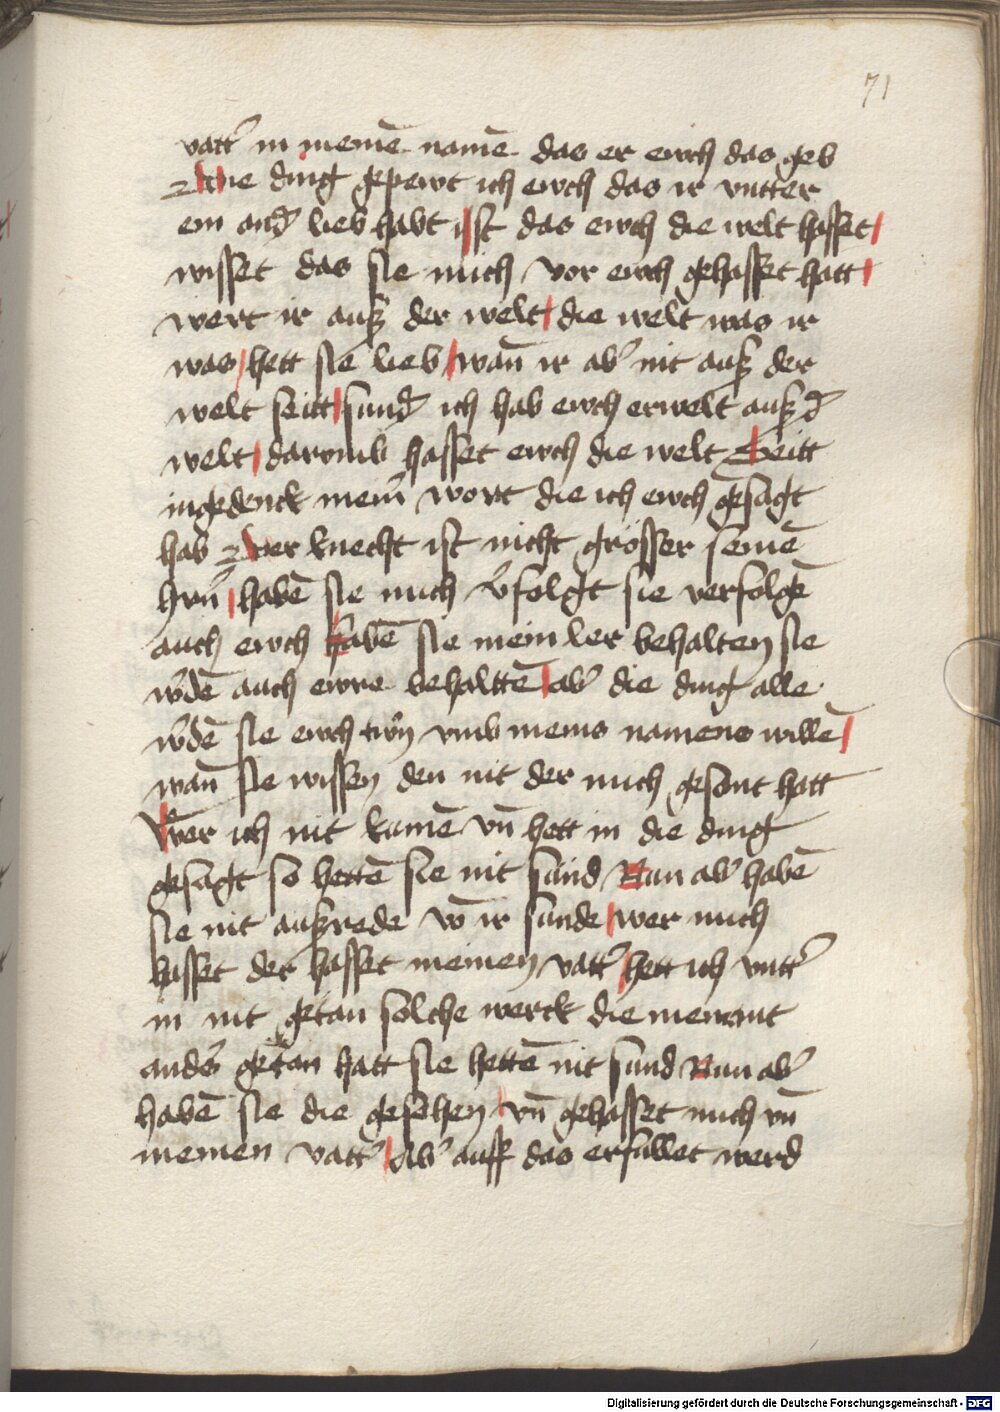 71
vatt' in meinē namē das er ewch das geb
Die ding gepewt ich ewch das ir vntter
ein and' lieb habt ist das ewch die welt hasset
wisset das sie mich vor ewch gehasset hatt
wert ir auß der welt die welt was ir
was hett sie lieb wan̄ ir ab' nit auß der
welt seitt sund' ich hab ewch erwelt auß d'
welt darvmb hasset ewch die welt Seitt
ingedenck mein' wort die ich ewch gesagt
hab Der knecht ist nicht grösser seinē
hrn̄ habē sie mich v'folgt sie verfolgē
auch ewch habē sie mein ler behalten sie
w'dē auch ewre behalttē ab' die ding alle
w'dē sie ewch tun vmb meins namens willē
wan̄ sie wissen den nit der mich gesant hatt
Wer ich nit kumē vn̄ hett in die ding
gesagt so hettē sie nit sünd Nun ab' habē
sie nit außrede vō ir sünde wer mich
hasset der hasset meinen vatt' hett ich vntt'
in nit getan solche werck die niemant
anders getan hatt sie hettē nit sünd Nun ab'
habē sie die gesehen vn̄ gehasset mich vn̄
meinen vatt' Ab' auff das erfüllet werd
Digitalisierung gefördert durch die Deutsche Forschungsgemeinschaft - DFG